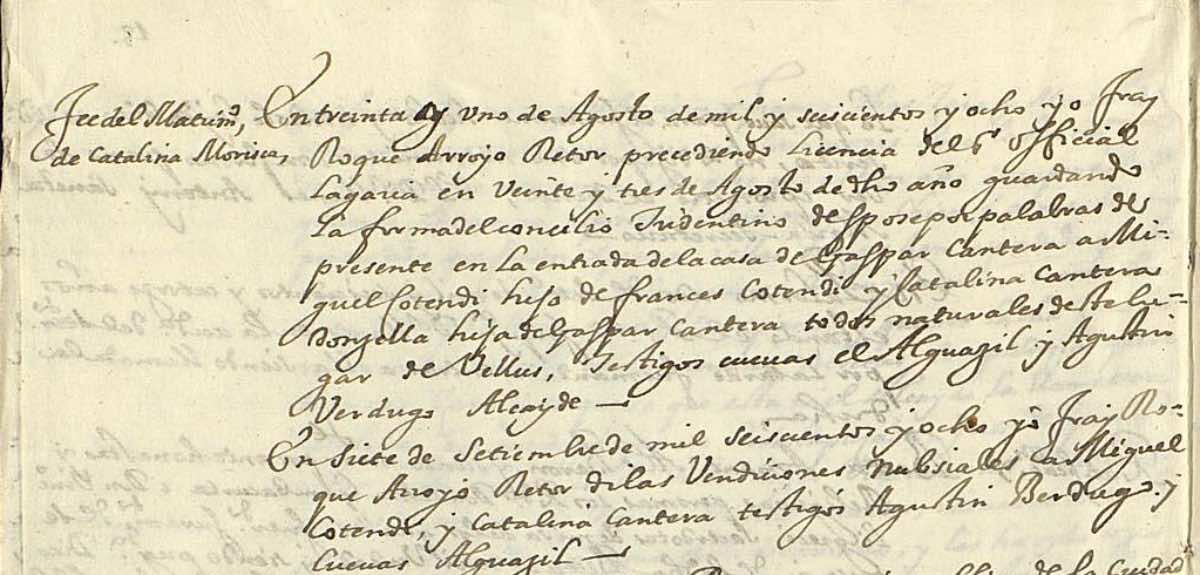 Fee del Matrimº,
de Catalina Morisca,
En treinta y uno de Agosto de mil y seiscientos y ocho yo Fray
Roque Arroyo Retor precediendo Licencia del Sr official
Lagaria en veinte y tres de Agosto de dho año guardando
la forma del concilio Tridentino despose por palabras de
presente en la entrada de la casa de Gaspar Cantera a Mi-
guel Cotendi hijo de frances Cotendi y Catalina Cantera
donzella hija de Gaspar Cantera todos naturales deste lu-
gar de Vellus, Testigos cuevas el Alguazil y Agustin
Verdugo Alcayde —
En siete de Setiembre de mil seiscientos y ocho yo Fray Ro-
que Arroyo Retor di las Vendiciones nubsiales a Miguel
Cotendi, y Catalina Cantera testigos Agustin Berdugo y
Cuevas Alguazil —
de la Ciudad